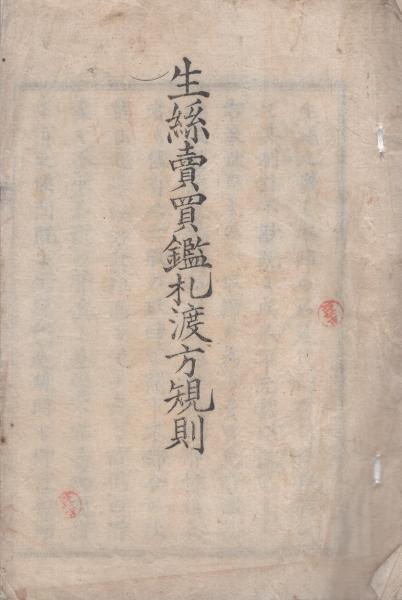 生絲賣買鑑札渡方規則